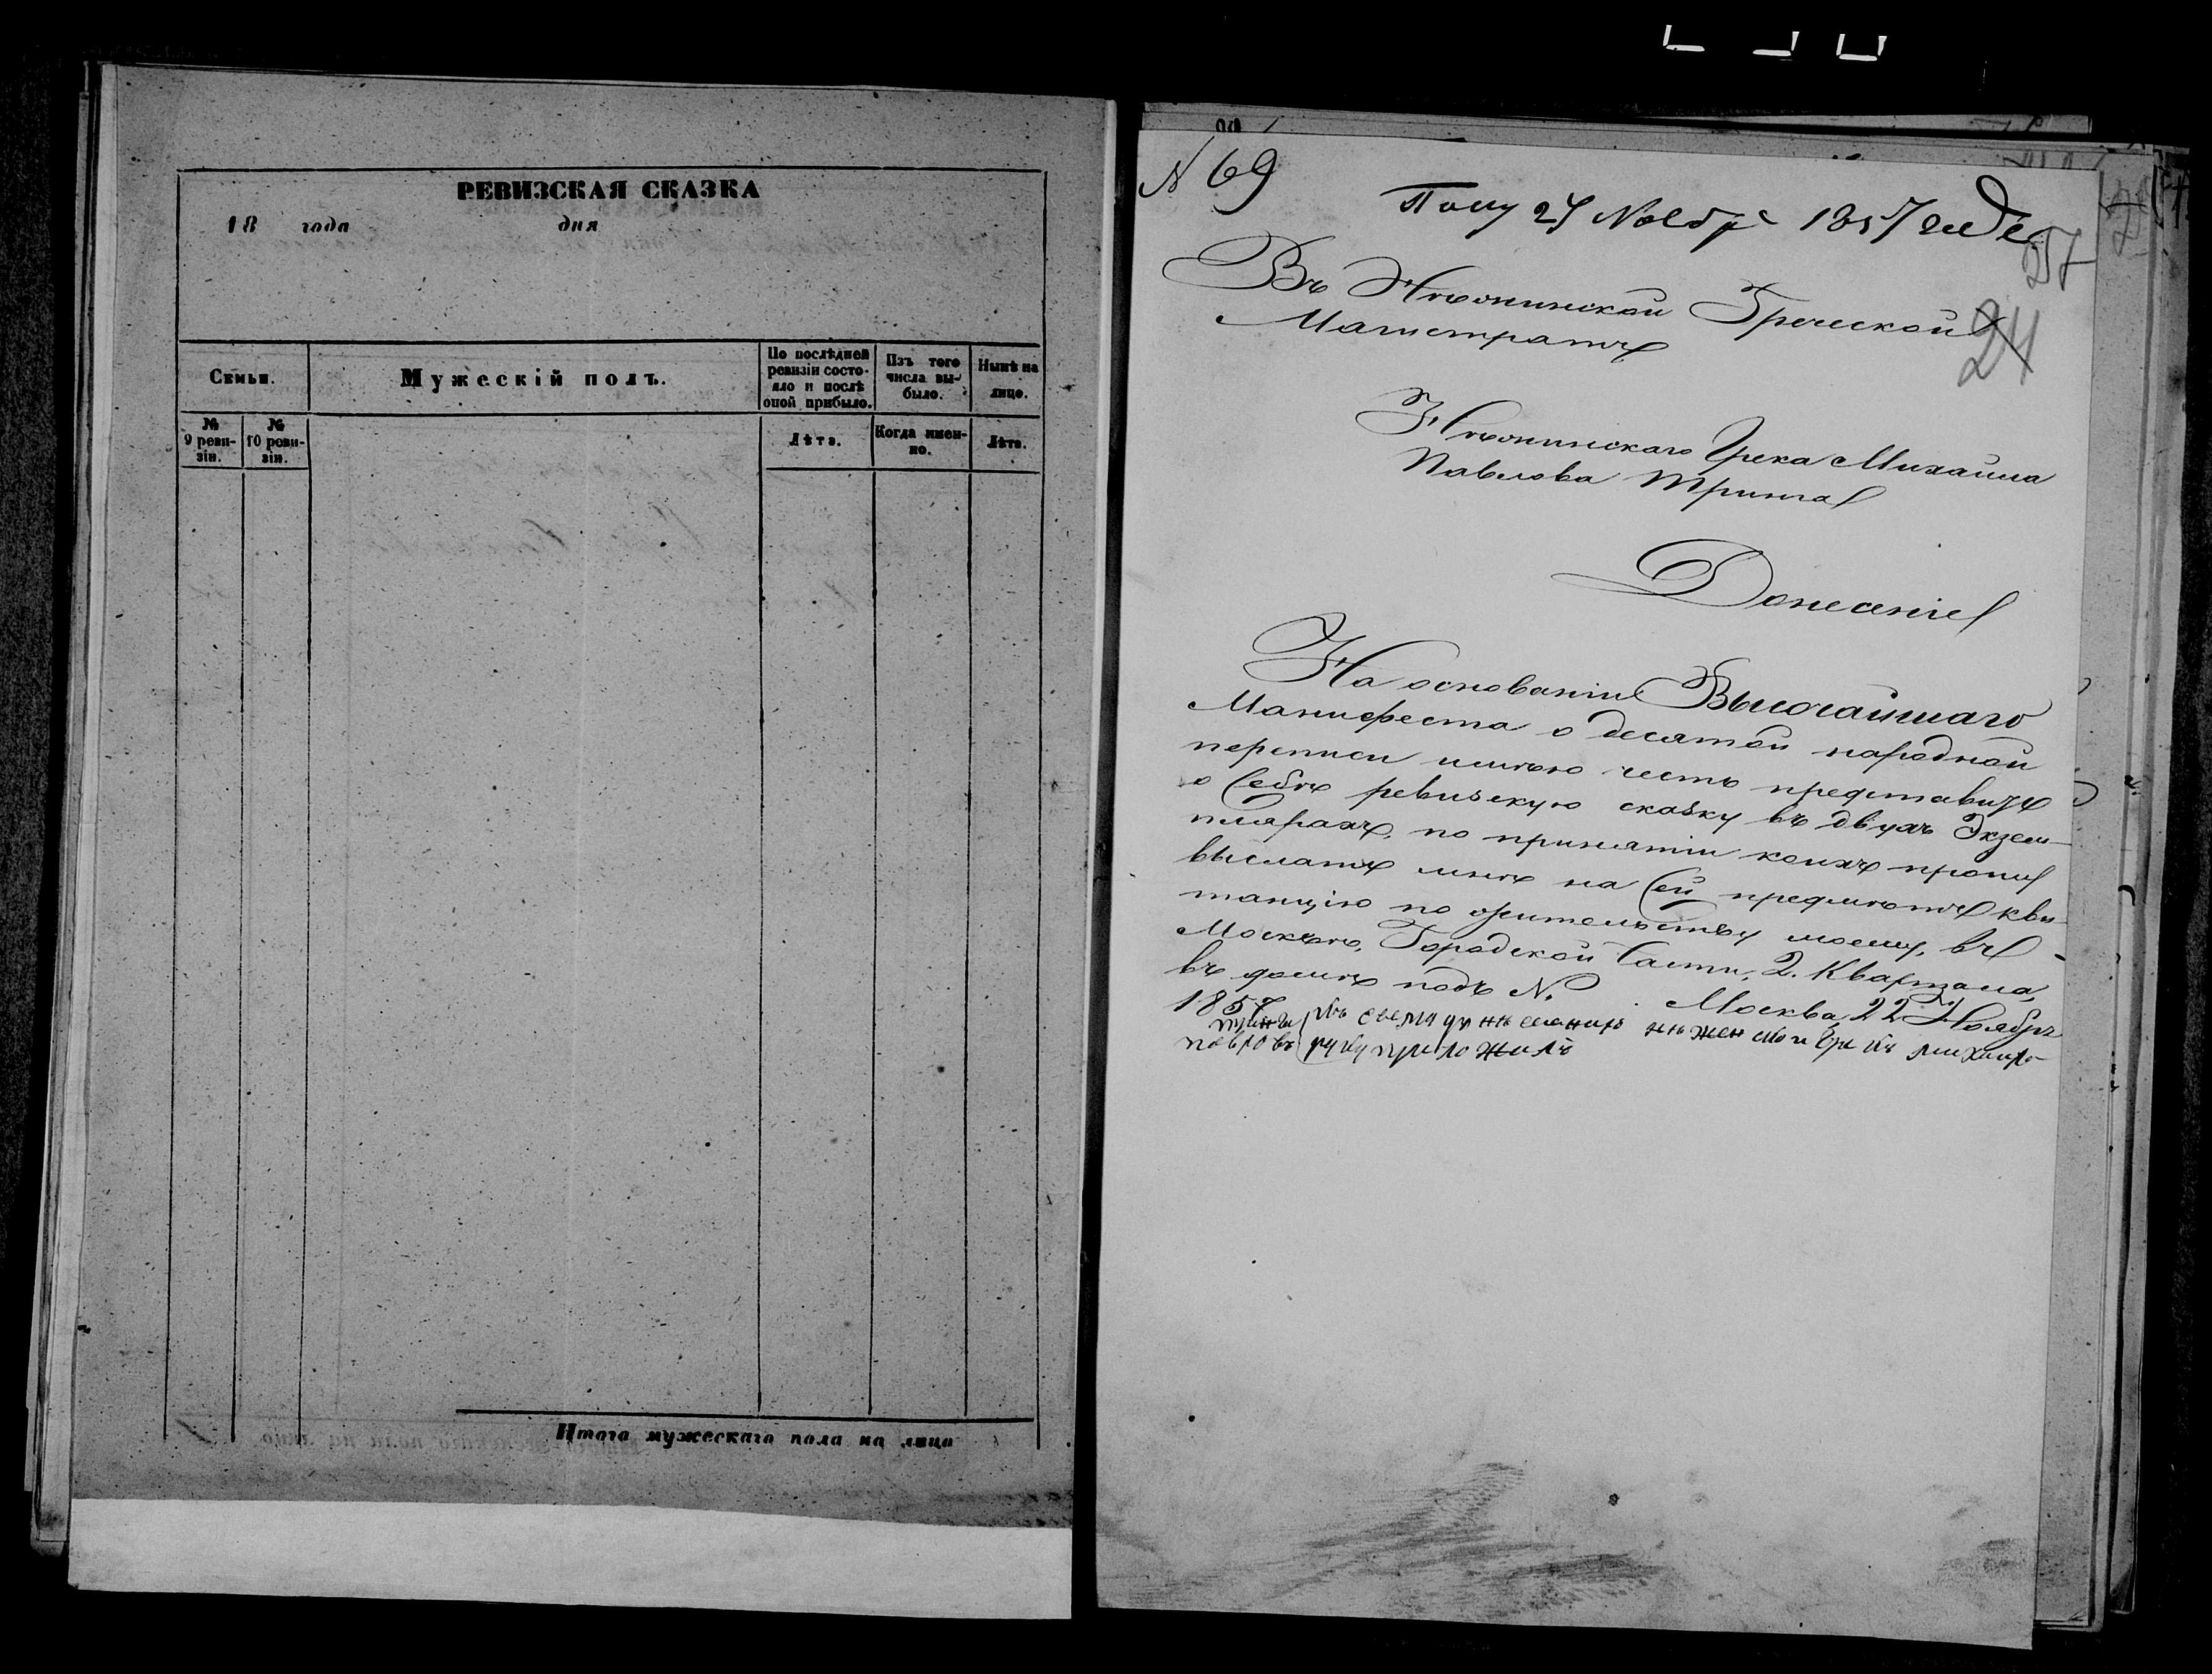 РЕВИЗСКАЯ СКАЗКА
18 года дня
Семьи.
Мужескій полъ.
По послѣдней ревизіи состояло и послѣ оной прибыло.
Изъ того числа выбыло.
Нынѣ на лицо.
№ 9 ревизіи.
№ 10 ревизіи.
Лѣта.
Когда именно.
Лѣта.
Итого мужескаго пола на лицо
N 69
27 1857 года
57
24
Въ Нѣжинской Греческой
Магистратъ
Нѣжинскаго Грека Михаила
Павлова
Донесеніе
На основаніи Высочайшаго
Манифеста о десятой народной
переписи имѣю честь представить
о себѣ ревизскую сказку въ двухъ Экзем-
плярахъ, по принятіи коихъ прошу
выслать мнѣ на сей предметъ кви-
танцію по жительству моему, въ
Москвѣ, Городской Части, 2. Квартала,
въ домѣ подъ N.
Москва, 22 Ноября
1857
руку приложилъ